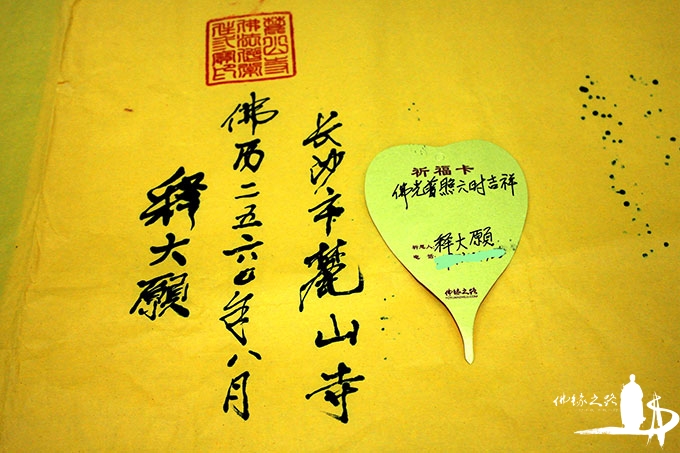 长沙市麓山寺
佛历二五六〇年八月
释大願
祈福卡
佛光普照六时吉祥
祈愿人 释大願
电话
佛缘之路
佛缘之路